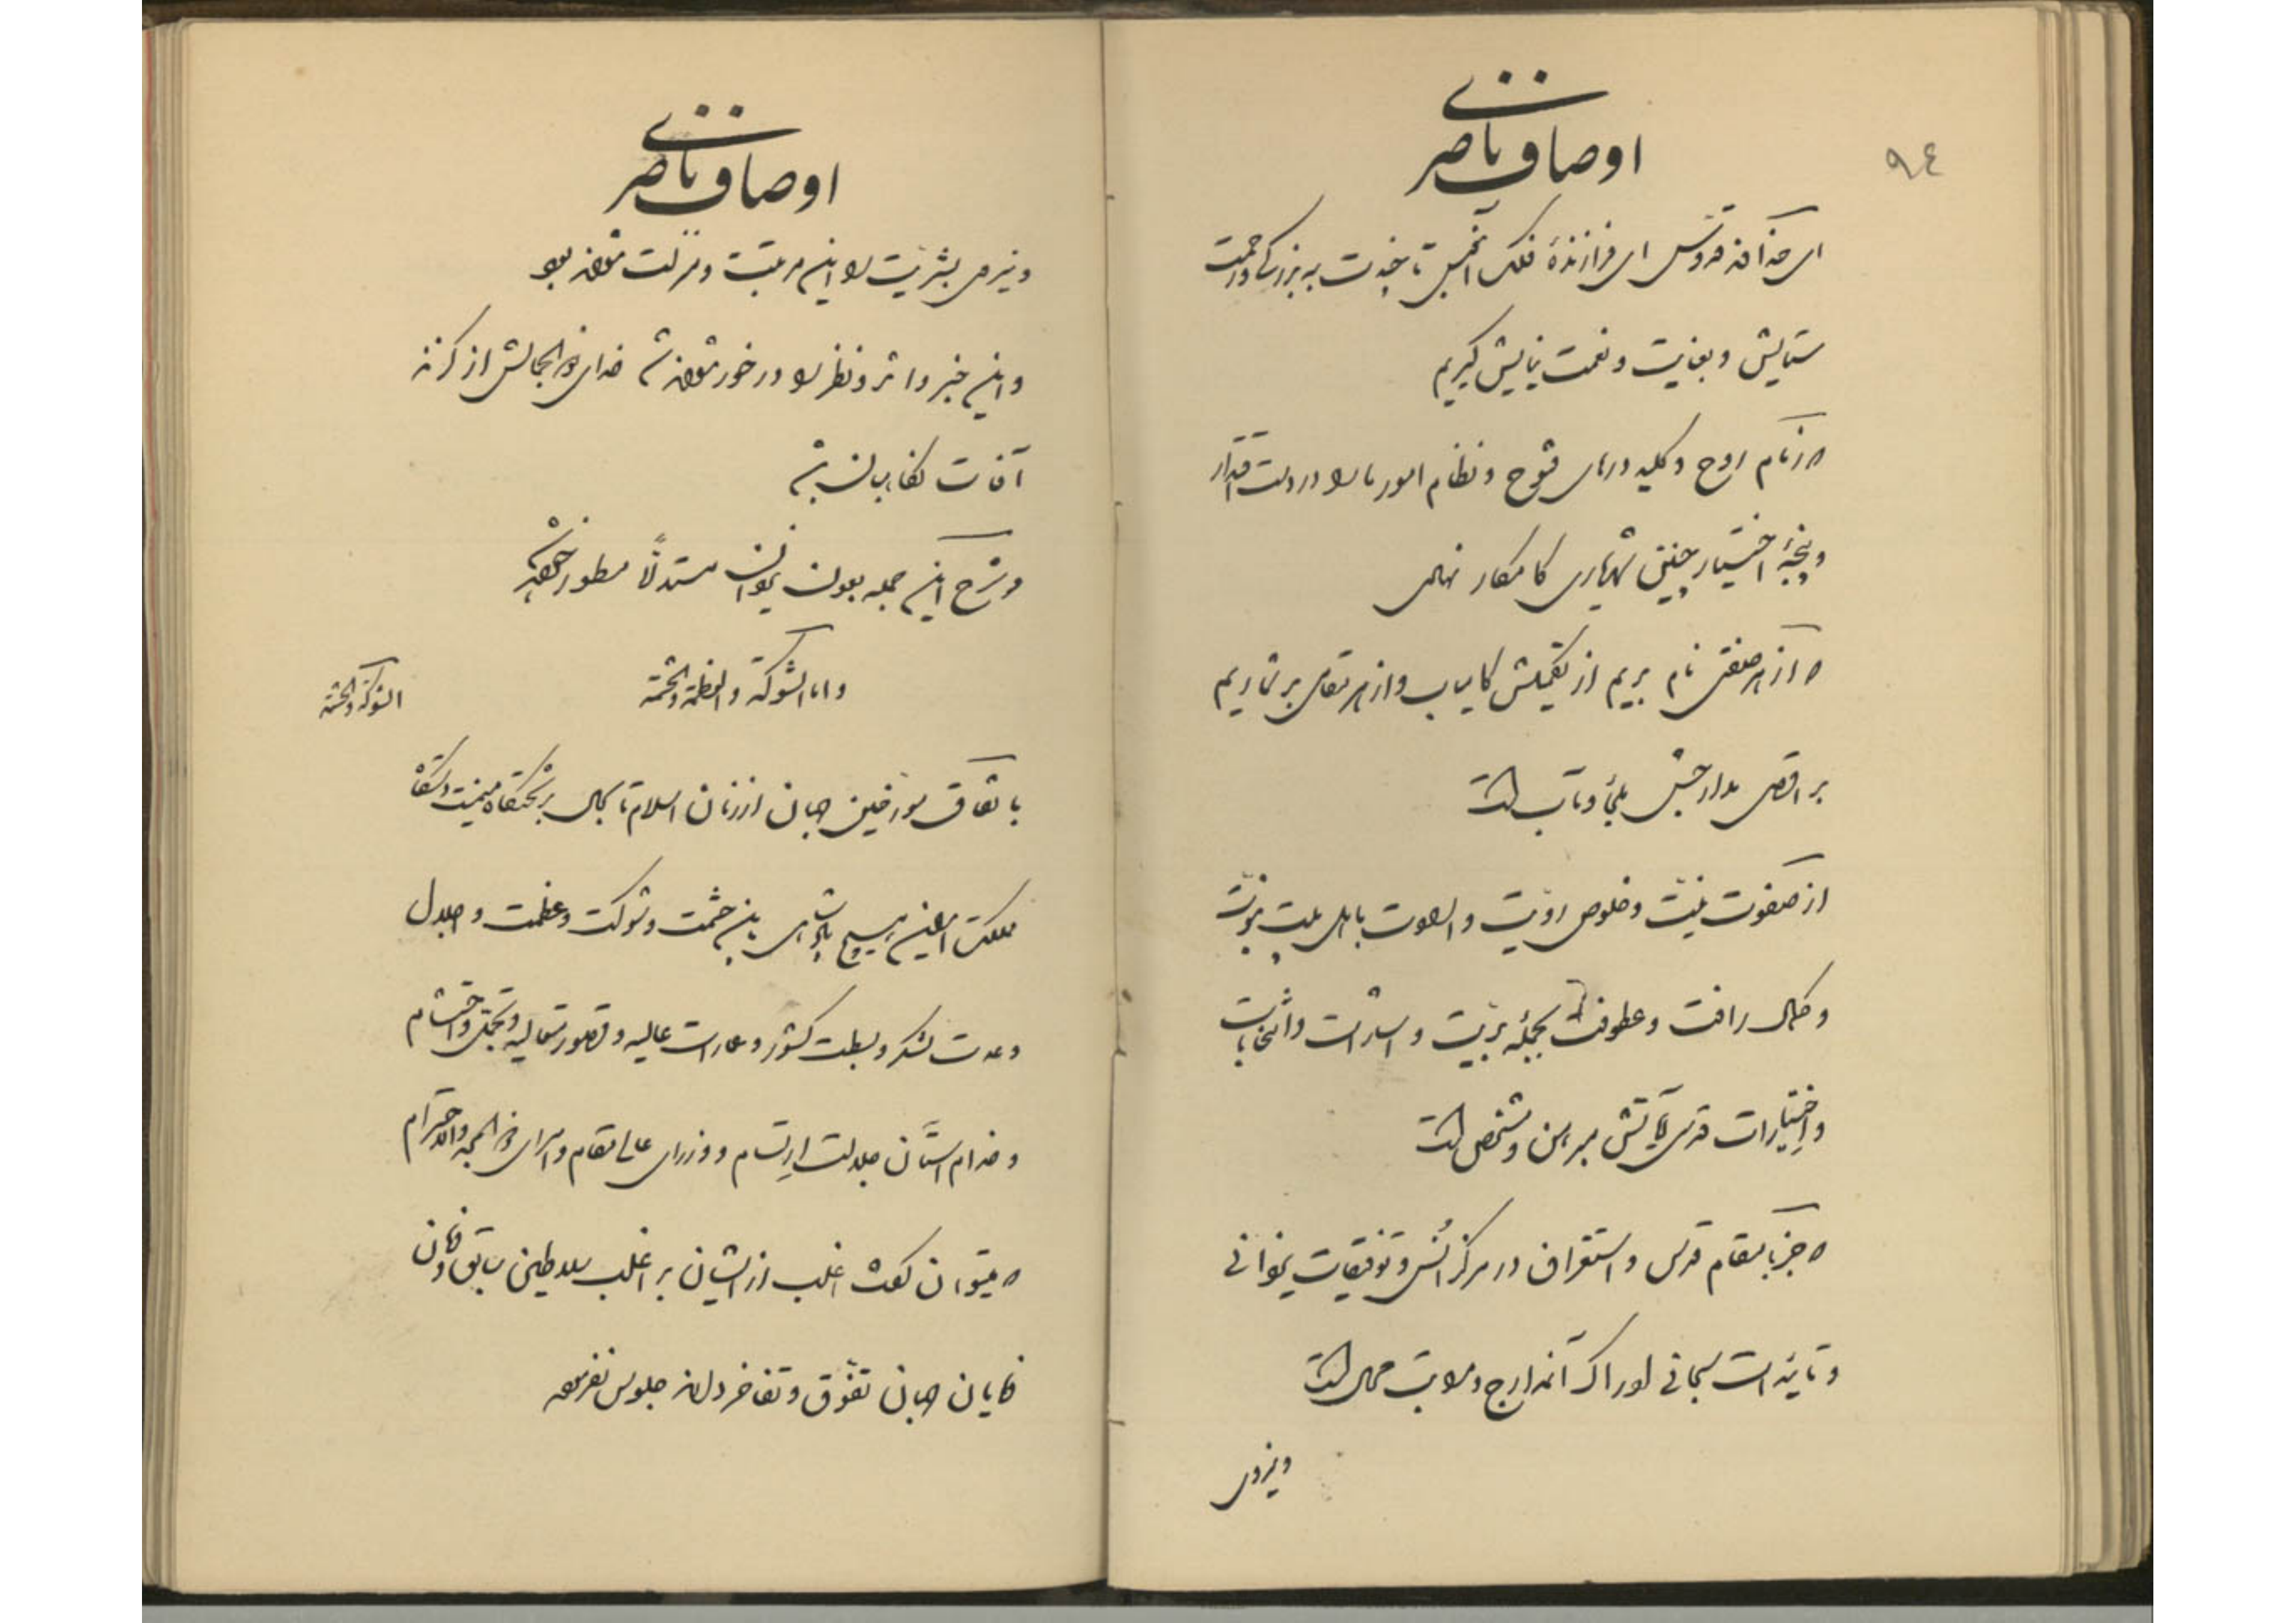 ٩٤
اوصاف ناصری
ای خداوند قدوس ای فرازندهٔ فلک آبنوس تا چندت به بزرگی و رحمت
ستایش و بعنایت و نعمت نیایش گیریم
که زمام روح و کلید درهای فتوح و نظام امور ما را در دست اقتدار
و پنجهٔ اختیار چنین شهریاری کامکار نهادی
که از هر صفتی نام بریم از تکمیلش کامیاب و از هر مقامی بر شماریم
بر اقصی مدارجش ملجأ و مآب است
از صفوت نیت و خلوص رویت و با اهل ملت
و کمال رافت و عطوفت بجمله بریت و اشارات و انتخابات
و اختیارات قدسی آیاتش مبرهن و مشخص است
که جز با مقام قدس و استغراق در مرکز انس و توفیقات یزدانی
و تاییدات سبحانی ادراک آن مدارج و مراتب محال است
و نیروی
اوصاف ناصری
و نیروی بشریت را این مرتبت و منزلت نتواند بود
و این خبر و اثر و نظر را در خور نتواند شد خدای ذو الجلالش از گزند
آفات نگاهبان باد
و شرح این جمله بعون یزدان مستدلاً مسطور خواهد شد
و اما الشوکة و العظمة و الحشمة
الشوکة و الحشمة
باتفاق مورخین جهان از زمان اسلام تا بحال بر تختگاه میمنت دستگاه
مملکت ایران هیچ پادشاهی باین حشمت و شوکت و عظمت و اجلال
و عدت لشکر و بسطت کشور و عمارات عالیه و قصور متعالیه و تجمل و احتشام
و خدام آستان جلالت ارتسام و وزرای عالی مقام و امرای ذو المجد و الاحترام
که میتوان گفت اغلب از ایشان بر اغلب سلاطین سابق و خاقان
جهان تفوق و تفاخر دارند جلوس نفرموده